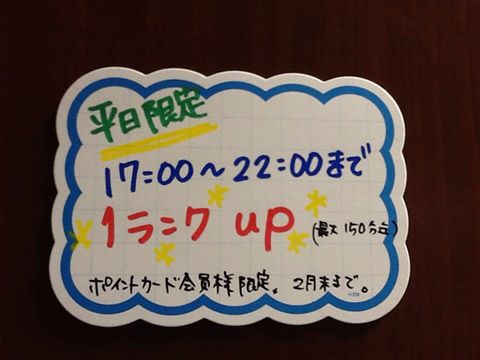 平日限定
17:00～22:00まで
1ランク up (最大150分迄)
ポイントカード会員様限定。2月末まで。